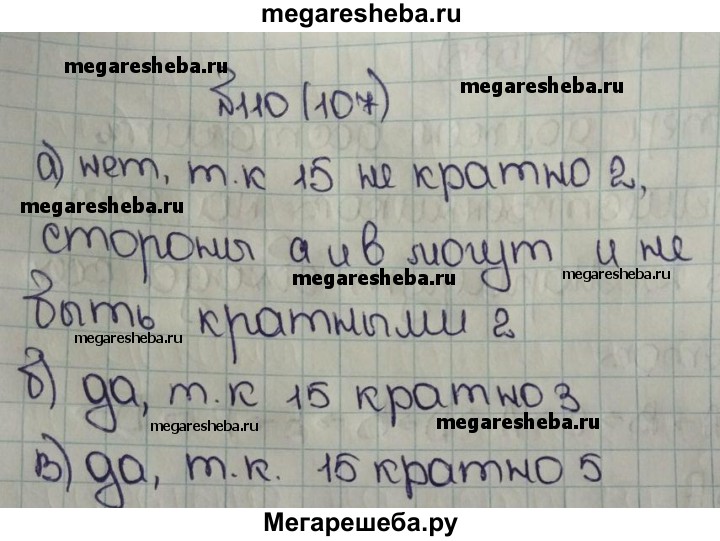 megaresheba.ru
megaresheba.ru
megaresheba.ru
№110 (107)
а) нет, т.к 15 не кратно 2,
megaresheba.ru
стороны а и в могут и не
megaresheba.ru
megaresheba.ru
быть кратными 2
megaresheba.ru
б) да, т.к 15 кратно 3
megaresheba.ru
megaresheba.ru
в) да, т.к. 15 кратно 5
Мегарешеба.ру